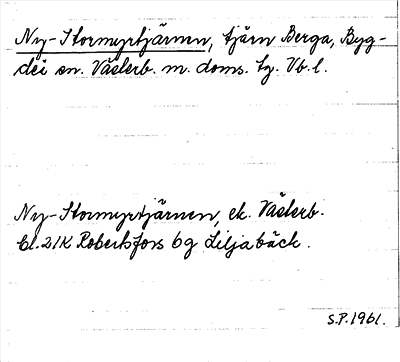 Ny-Stormyrtjärnen, tjärn Berga, Byg-
dei sn. Västerb. m. doms. tg. Vb.l.
Ny-Stormyrtjärnen, ek. Västerb.
bl. 21K Robertsfors 6g Liljabäck.
S.P.1961.